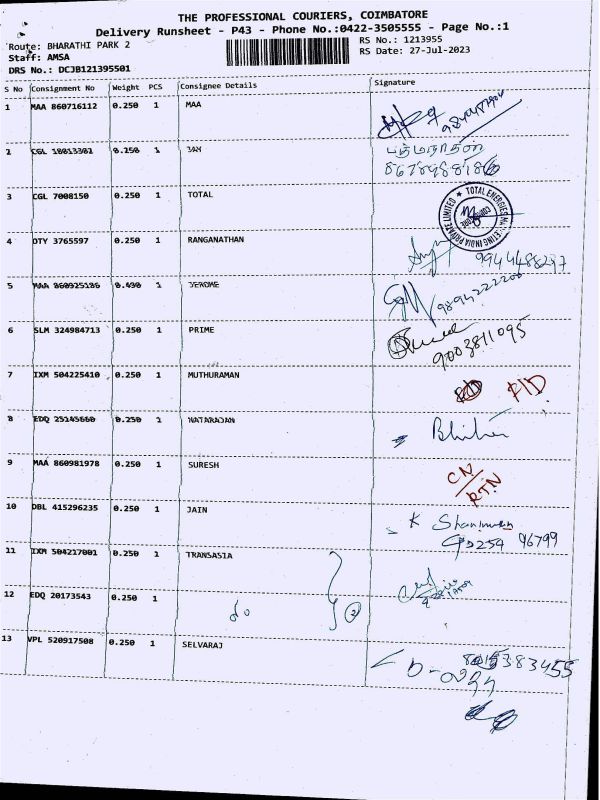 THE PROFESSIONAL COURIERS, COIMBATORE
Delivery Runsheet - P43 - Phone No.:0422-3505555 - Page No.:1
Route: BHARATHI PARK 2
RS No.: 1213955
Staff: AMSA
RS Date: 27-Jul-2023
DRS No.: DCJB121395501
S No Consignment No Weight PCS Consignee Details Signature
1 MAA 860716112 0.250 1 MAA
2 CGL 0.250 1 JAY
பத்மநாதன்
3 CGL 7008150 0.250 1 TOTAL
TOTAL ENERGIES MARKETING INDIA PRIVATE LIMITED
4 DTY 3765597 0.250 1 RANGANATHAN
9944488297
5 MAA 860925186 0.490 1 JEROME
9894222200
6 SLM 324984713 0.250 1 PRIME
9003811095
7 IXM 504225410 0.250 1 MUTHURAMAN
8 EDQ 25145660 0.250 1 NATARAJAN
9 MAA 860981978 0.250 1 SURESH
CN/
RTN
10 DBL 415296235 0.250 1 JAIN
K
96799
11 IXM 504217001 0.250 1 TRANSASIA
12 EDQ 20173543 0.250 1
do 2
13 VPL 520917508 0.250 1 SELVARAJ